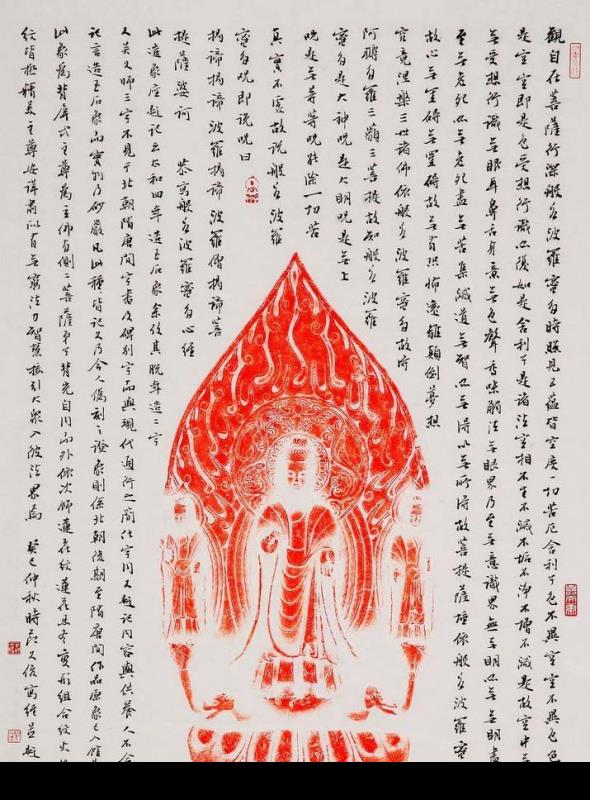 觀自在菩薩行深般若波羅蜜多時照見五蘊皆空度一切苦厄舍利子色不異空空不異色色
是空空即是色受想行識亦復如是舍利子是諸法空相不生不滅不垢不淨不增不減是故空中
無受想行識無眼耳鼻舌身意無色聲香味觸法無眼界乃至無意識界無無明亦無無明盡
至無老死亦無老死盡無苦集滅道無智亦無得以無所得故菩提薩埵依般若波羅蜜
故心無罣礙無罣礙故無有恐怖遠離顛倒夢想
究竟涅槃三世諸佛依般若波羅蜜多故得
阿耨多羅三藐三菩提故知般若波羅
蜜多是大神咒是大明咒是無上
咒是無等等咒能除一切苦
真實不虛故說般若波羅
蜜多咒即說咒曰
揭諦揭諦波羅揭諦波羅僧揭諦菩
提薩婆訶 恭寫般若波羅蜜多心經
此造象座題記云太和四年造玉石象余其脫年造二字
又師三字不見于北朝隋唐間字書及碑別字而與現代通行之簡化字同又題記內容與供養人不合
記言造玉石象而實則乃砂巖凡此種皆記文乃今人偽刻之證象則係北朝後期至隋唐間作品原象已入館
此象為背屏式主尊為立佛有側二菩薩背光自內而外依次飾蓮花紋蓮花變形組合紋火
紋皆極精美主尊安詳肅有無窮法力智慧接引大眾入彼法界焉 癸巳仲秋時又信寫經并題